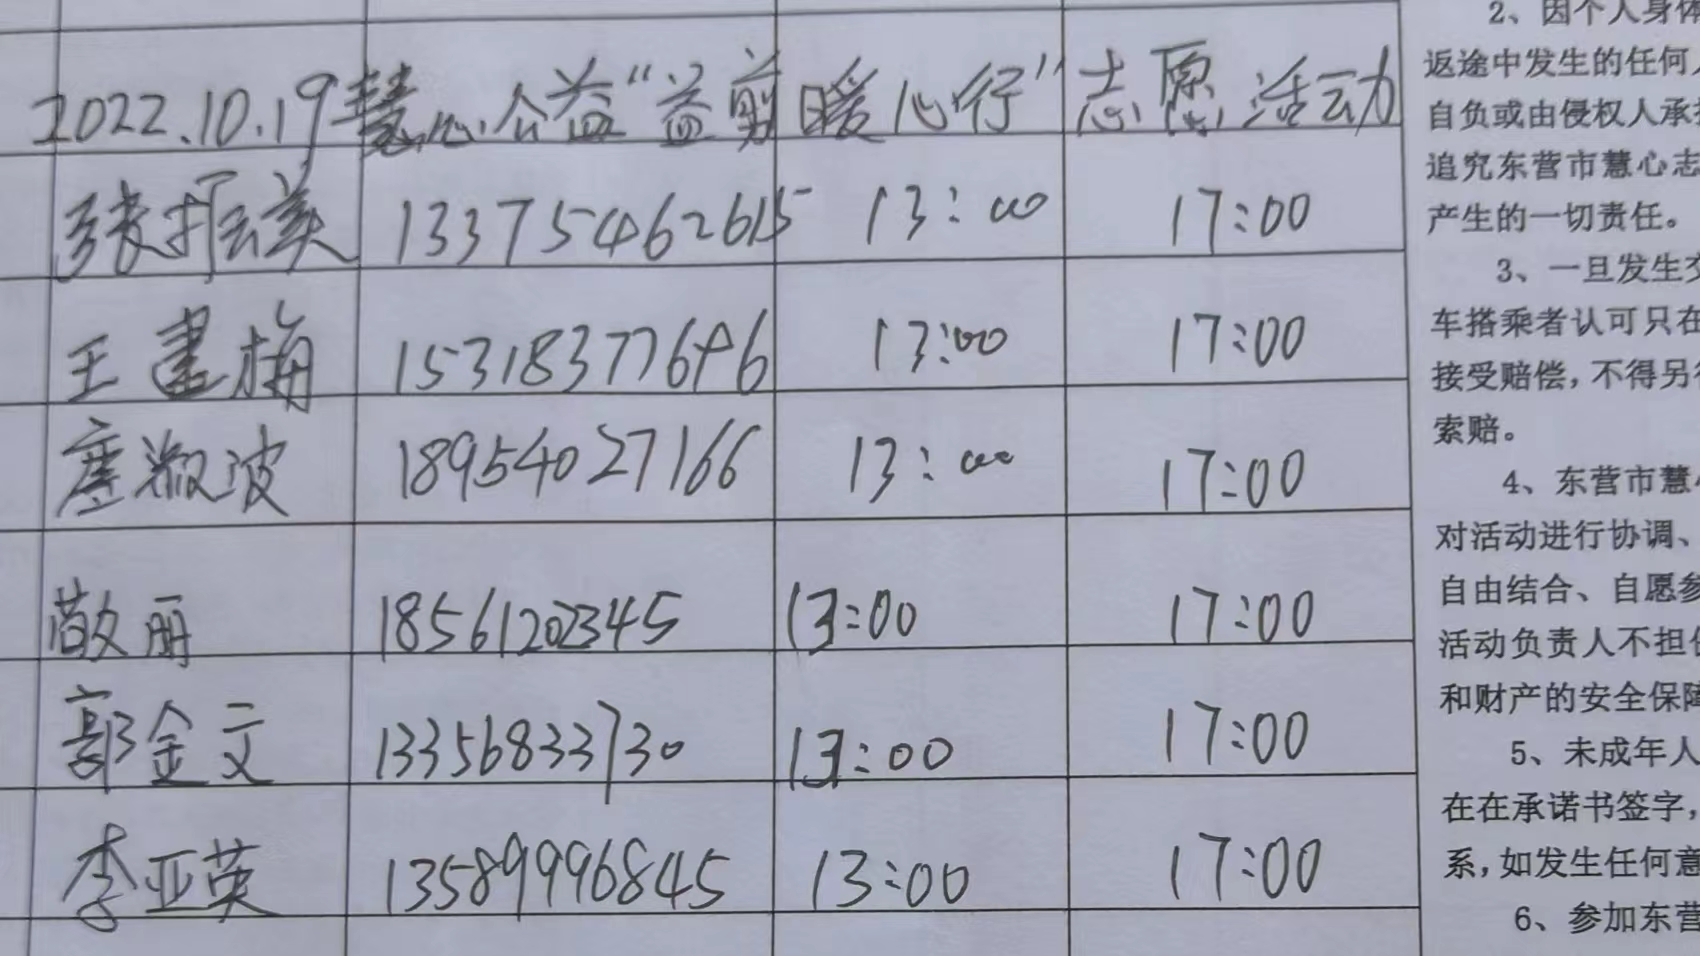 2022.10.19慧心公益“益剪暖心行”志愿活动
张振美 13375462615 13:00 17:00
王建梅 15318377696 13:00 17:00
波 18954027166 13:00 17:00
敬丽 18561202345 13:00 17:00
郭金文 13356833730 13:00 17:00
李亚英 13589996845 13:00 17:00
2、因个人身体
返途中发生的任何人
自负或由侵权人承担
追究东营市慧心志
产生的一切责任。
3、一旦发生交
车搭乘者认可只在
接受赔偿，不得另行
索赔。
4、东营市慧心
对活动进行协调、
自由结合、自愿参
活动负责人不担任
和财产的安全保障
5、未成年人
在在承诺书签字，
系，如发生任何意
6、参加东营